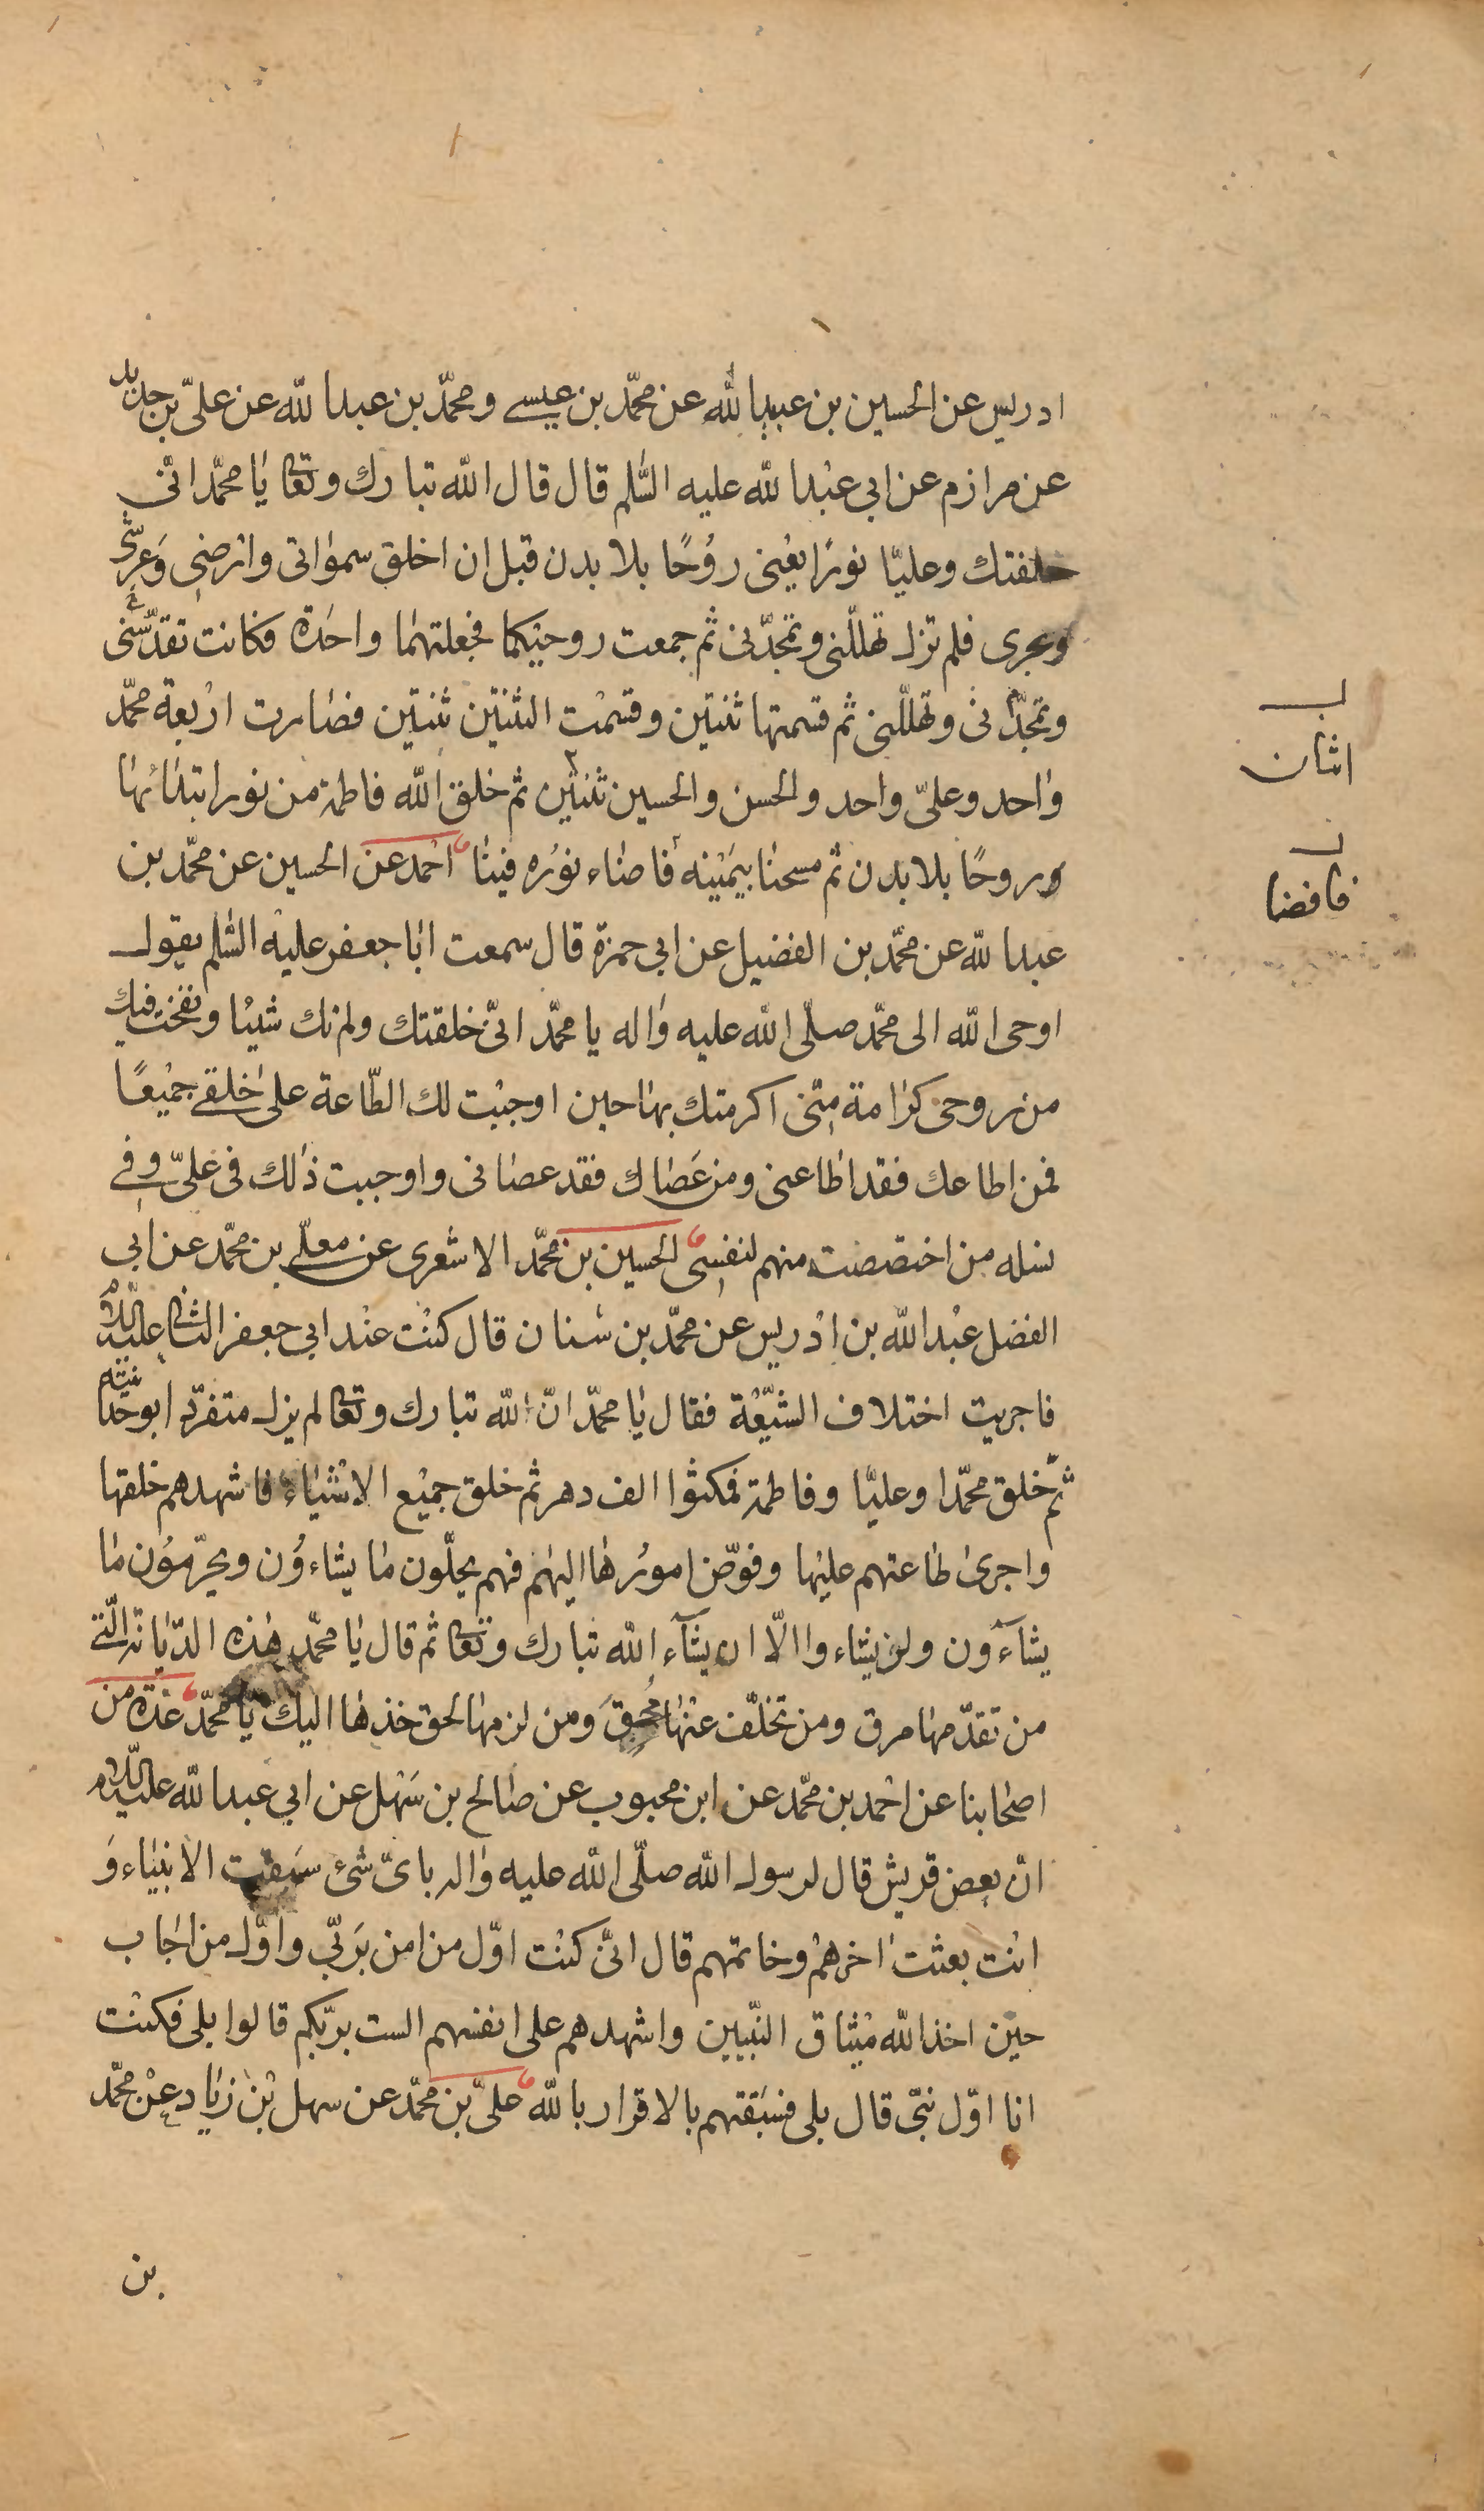 ادريس عن الحسين بن عبيد الله عن محمّد بن عيسے ومحمّد بن عبد الله عن علىّ بن حديد
عن مرازم عن ابي عبد الله عليه السّلم قال قال الله تبارك وتعا يا محمّد انّى
خلقتك وعليّا نورًا يعنى روُحًا بلا بدن قبل ان اخلق سمواتى وارضى وَعرشى
وبحرى فلم تزل تهلّلنى وتمجّدنى ثم جمعت روحيكما فجعلتهما واحدة فكانت تقدّسنى
وتمجّدنى وتهلّلنى ثم قسمتها ثنتين وقسمت الثنتين ثنتين فصارت اربعة محمّد
واحد وعلىّ واحد والحسن والحسين ثنتين ثم خلق الله فاطمة من نور ابتدائها
وروحًا بلا بدن ثم مسحنا بيمينه فاضاء نوره فينا احمد عن الحسين عن محمّد بن
عبد الله عن محمّد بن الفضيل عن ابي حمزة قال سمعت ابا جعفر عليه السّلم يقول
اوحى الله الى محمّد صلّى الله عليه واله يا محمّد انّى خلقتك ولم تك شيئا ونفخت فيك
من روحى كرامة منّى اكرمتك بها حين اوجبت لك الطّاعة على خلقے جميعًا
فمن اطاعك فقد اطاعنى ومن عَصاك فقد عصانى واوجبت ذلك فى علىّ وفے
نسله من اختصصت منهم لنفسى الحسين بن محمّد الاشعرى عن معلّے بن محمّد عن ابى
الفضل عبد الله بن ادريس عن محمّد بن سنان قال كنت عند ابي جعفر الثانى عليه السّلام
فاجريت اختلاف الشّيعة فقال يا محمّد انّ الله تبارك وتعا لم يزل متفرّدا بوحدانيته
ثمّ خلق محمّدا وعليّا وفاطمة فمكثوا الف دهر ثم خلق جميع الاشياء فاشهدهم خلقها
واجرى طاعتهم عليها وفوّض امورها اليهم فهم يحلّون ما يشاءوُن ويحرّموُن ما
يشآءون ولن يشاءوا الّا ان يشآء الله تبارك وتعا ثم قال يا محمّد هذه الدّيانة الّتے
من تقدّمها مرق ومن تخلّف عنها مُحِقَ وَمن لزمها لحق خذها اليك يا محمّد عدّة من
اصحابنا عن احمد بن محمّد عن ابن محبوب عن صالح بن سَهل عن ابي عبد الله عليه السّلام
انّ بعض قريش قال لرسول الله صلّى الله عليه واله باىّ شئ سَبقت الانبياء وَ
انت بعثت اخرهم وخاتمهم قال انّى كنت اوّل من امن بَربّي واوّل من اجاب
حين اخذ الله ميثاق النّبيين واشهدهم على انفسهم الست بربّكم قالوا بلى فكنت
انا اوّل نبىّ قال بلى فسَبَقتهم بالاقرار بالله علىّ بن محمّد عن سهل بن زياد عن محمّد
بن
اثنان
فافضا